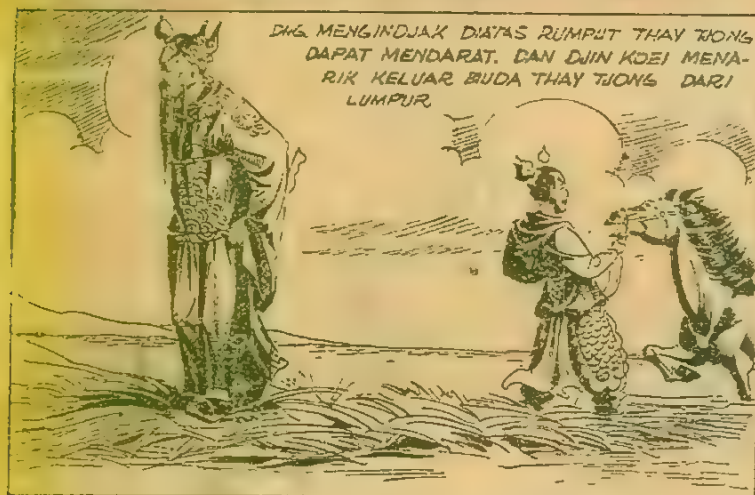 DNG. MENGINDJAK DIATAS RUMPUT THAY TJONG
DAPAT MENDARAT. DAN DJIN KOEI MENA-
RIK KELUAR KUDA THAY TJONG DARI
LUMPUR